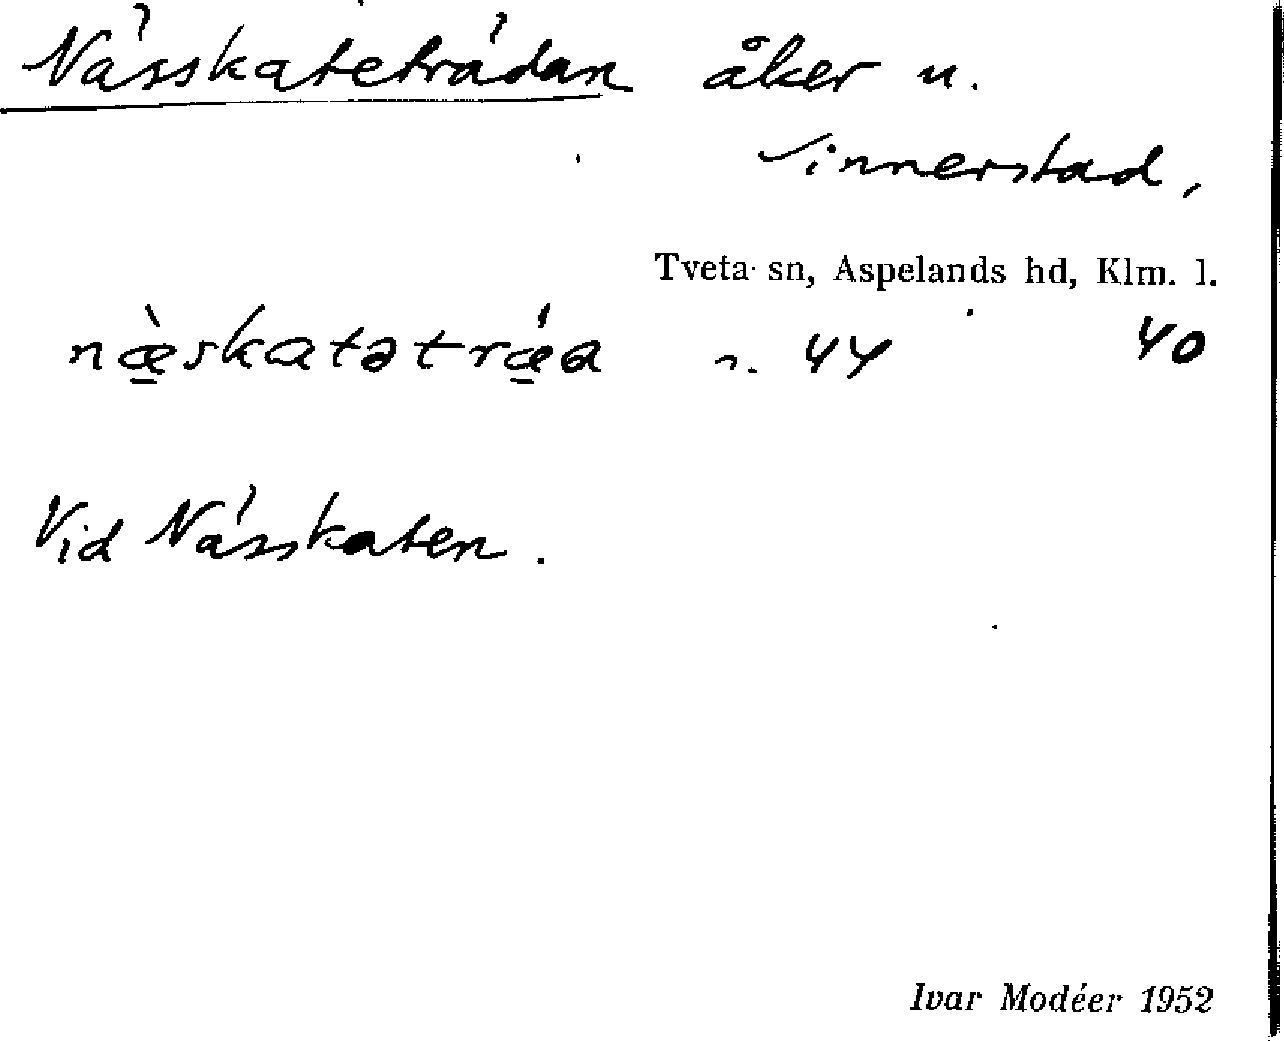 Nässkateträdan åker u.
Vinnerstad,
Tveta sn, Aspelands hd, Klm. l.
næ̀skatətrǽa n. 44 40
Vid Nässkaten.
Ivar Modéer 1952